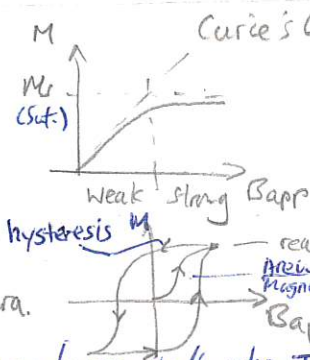 M
Curie's
Ms
(Sat.)
weak strong Bapp
hysteresis M
rea
Magn
ra.
Bap